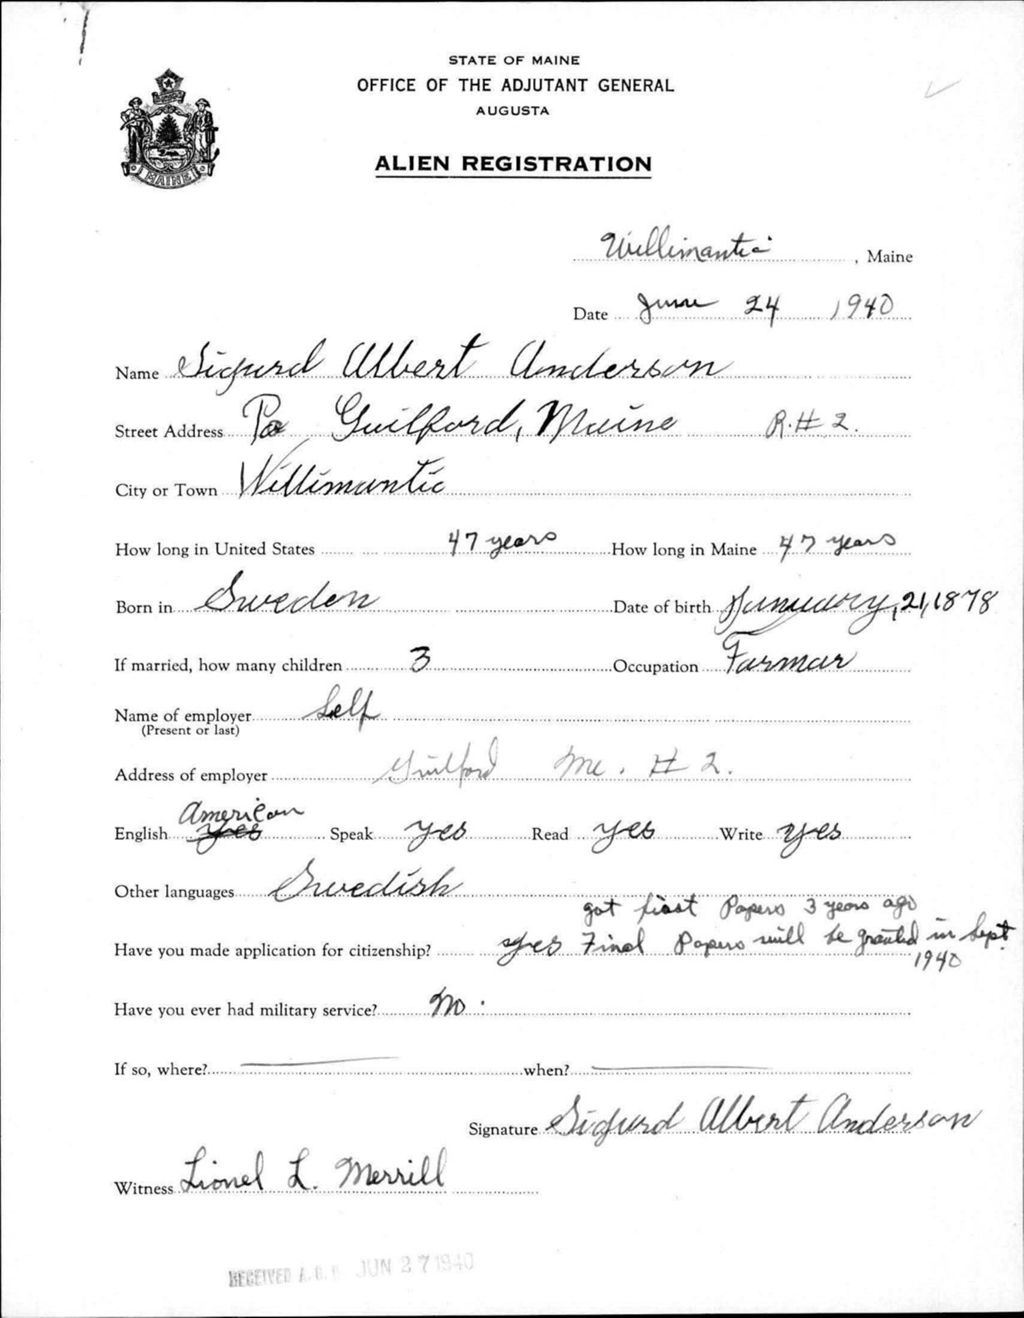 STATE OF MAINE
OFFICE OF THE ADJUTANT GENERAL
AUGUSTA
MAINE
ALIEN REGISTRATION
Willimantic, Maine
Date June 24 1940
Name Sigurd Albert Anderson
Street Address Po Guilford, Maine R.#2.
City or Town Willimantic
How long in United States 47 years How long in Maine 47 years
Born in Sweden Date of birth January, 21, 1878
If married, how many children 3 Occupation Farmar
Name of employer Self
(Present or last)
Address of employer Guilford Me. #2.
American
English yes Speak yes Read yes Write yes
Other languages Swedish
got first Papers 3 years ago
Have you made application for citizenship? yes Final Papers will be granted in Sept.
1940
Have you ever had military service? No.
If so, where? when?
Signature Sigurd Albert Anderson
Witness Lionel L. Merrill
RECEIVED A. G. JUN 27 1940